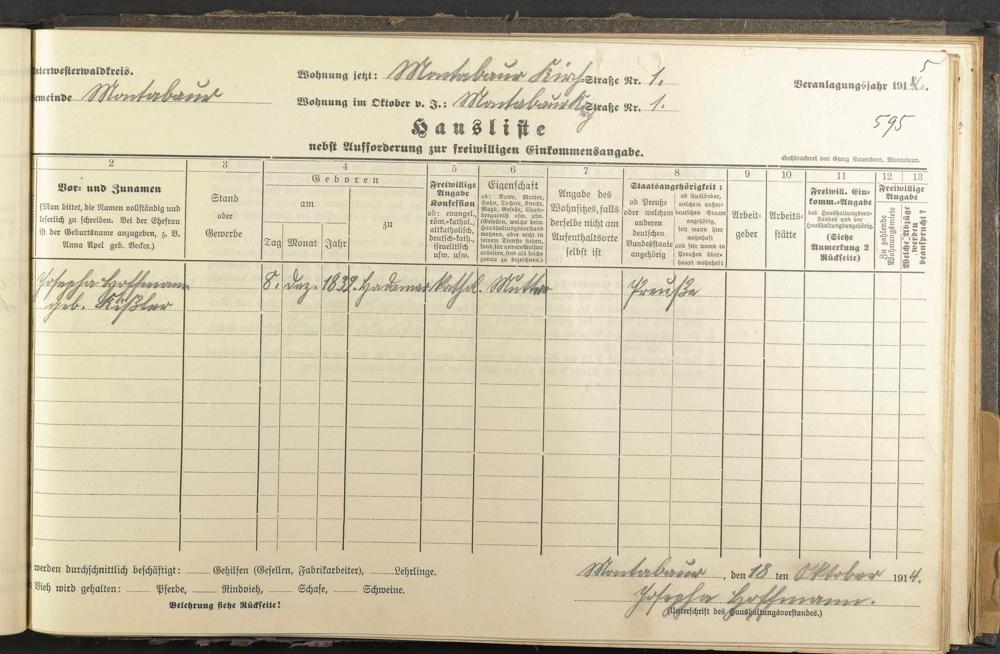 Unterwesterwaldkreis.
Wohnung jetzt: Montabaur Kirch Straße Nr. 1.
Veranlagungsjahr 191
5
Gemeinde Montabaur
Wohnung im Oktober v. J.: Montabaur Straße Nr. 1.
595
Hausliste
nebst Aufforderung zur freiwilligen Einkommensangabe.
Buchdruckerei von Georg Sauerborn, Montabaur.
2 3 4 5 6 7 8 9 10 11 12 13
Vor- und Zunamen
(Man bittet, die Namen vollständig und
leserlich zu schreiben. Bei der Ehefrau
ist der Geburtsname anzugeben, z. B.
Anna Apel geb. Becker.)
Stand
oder
Gewerbe
Geboren
am
zu
Tag Monat Jahr
Freiwillige
Angabe
Konfession
ob: evangel.,
röm.-kathol.,
altkatholisch,
deutsch-kath.,
israelitisch
usw. usw.
Eigenschaft
ob: Vater, Mutter,
Sohn, Tochter, Knecht,
Magd, Geselle, Cham-
bregarnist usw. usw.
Angabe des
Wohnsitzes, falls
derselbe nicht am
Aufenthaltsorte
selbst ist
Staatsangehörigkeit:
ob Preuße
oder welchem
anderen
deutschen
Bundesstaate
angehörig
ob Ausländer,
welchem außer-
deutschen Staate
angehörig,
seit wann hier
wohnhaft
und seit wann in
Preußen über-
haupt wohnhaft
Arbeit-
geber
Arbeits-
stätte
Freiwill. Ein-
komm.-Angabe
des Haushaltungsvor-
standes und der
Haushaltungsangehörig.
(Siehe
Anmerkung 2
Rückseite)
Freiwillige
Angabe
Zu zahlende
Wohnungsmiete
Welche Abzüge
werden
beansprucht?
Josepha Hoffmann 8. Dez. 1839. Hadamar Kathol. Mutter Preuße
geb. Kißler
werden durchschnittlich beschäftigt: Gehilfen (Gesellen, Fabrikarbeiter), Lehrlinge.
Vieh wird gehalten: Pferde, Rindvieh, Schafe, Schweine.
Belehrung siehe Rückseite!
Montabaur, den 18 ten Oktober 1914.
Josepha Hoffmann.
(Unterschrift des Haushaltungsvorstandes.)